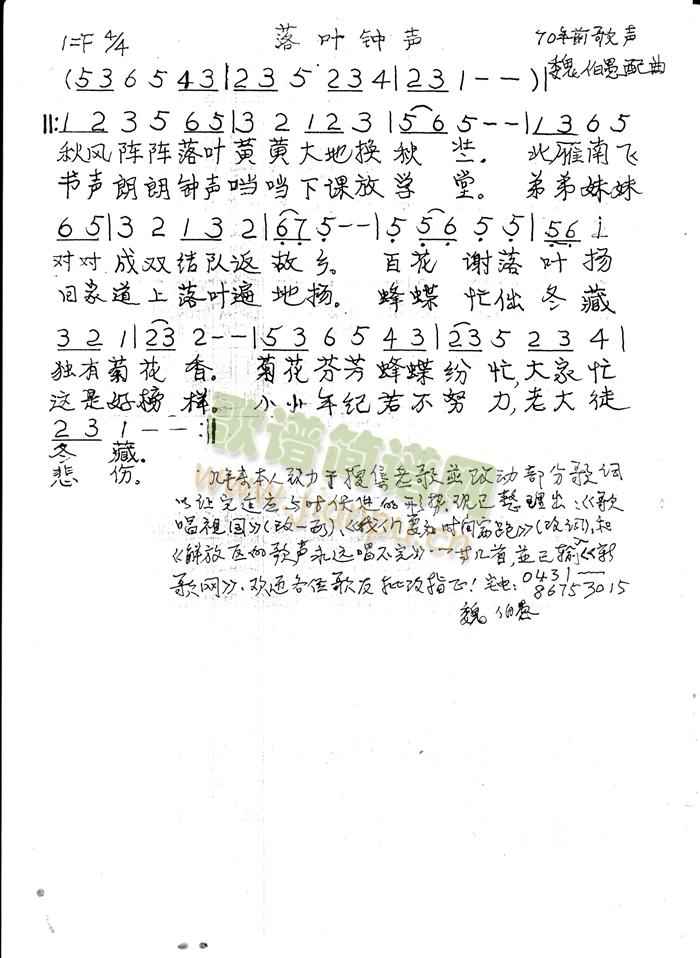 1=F 4/4 落叶钟声 70年前歌声
魏伯愚配曲
(5 3 6 5 4 3|2 3 5 2 3 4|2 3 1 - -)|
||:1 2 3 5 6 5|3 2 1 2 3|5 6 5 - -|1 3 6 5
秋风阵阵落叶黄黄大地换秋装。 北雁南飞
书声朗朗钟声当当下课放学堂。 弟弟妹妹
6 5|3 2 1 3 2|6 7 5 - -|5 5 6 5 5|5 6 i
对对成双结队返故乡。 百花谢落叶扬
回家道上落叶遍地扬。 蜂蝶忙低冬藏
3 2 1|2 3 2 - -|5 3 6 5 4 3|2 3 5 2 3 4|
独有菊花香。 菊花芬芳蜂蝶纷忙,大家忙
这是好榜样。 小小年纪若不努力,老大徒
2 3 1 - - :||
冬藏。
悲伤。
歌谱简谱网
www.jianpu.cn
几年来本人致力于搜集老歌並改动部分歌词
以让它适应与时俱进的形势,现已整理出:《歌
唱祖国》(改一句)、《我们要和时间赛跑》(改词),和
《解放区的歌声永远唱不完》一共几首,並已输《新
歌网》、欢迎各位歌友批改指正!宅电:0431—
86753015
魏伯愚